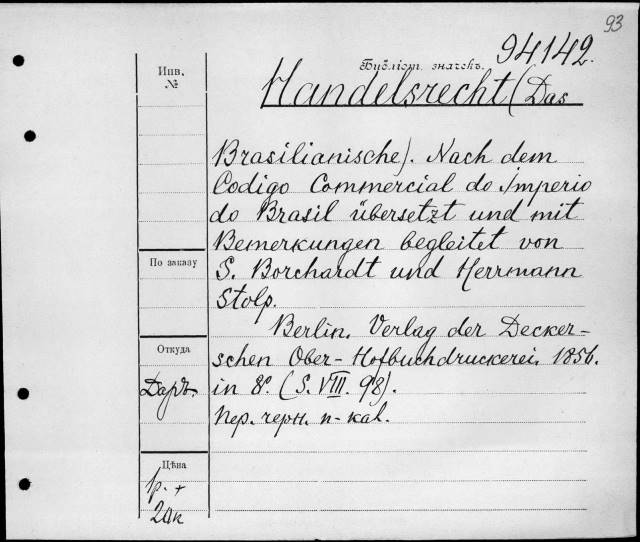 93
94142.
Библіот. значекъ.
Инв.
№
Handelsrecht (Das
Brasilianische). Nach dem
Codigo Commercial do Imperio
do Brasil übersetzt und mit
Bemerkungen begleitet von
По заказу
S. Borchardt und Herrmann
Stolp.
Berlin. Verlag der Decker-
Откуда
schen Ober-Hofbuchdruckerei. 1856.
Даръ.
in 8º. (S. VIII. 98).
Пер. черн. п-кал.
Цѣна
1р. +
20к